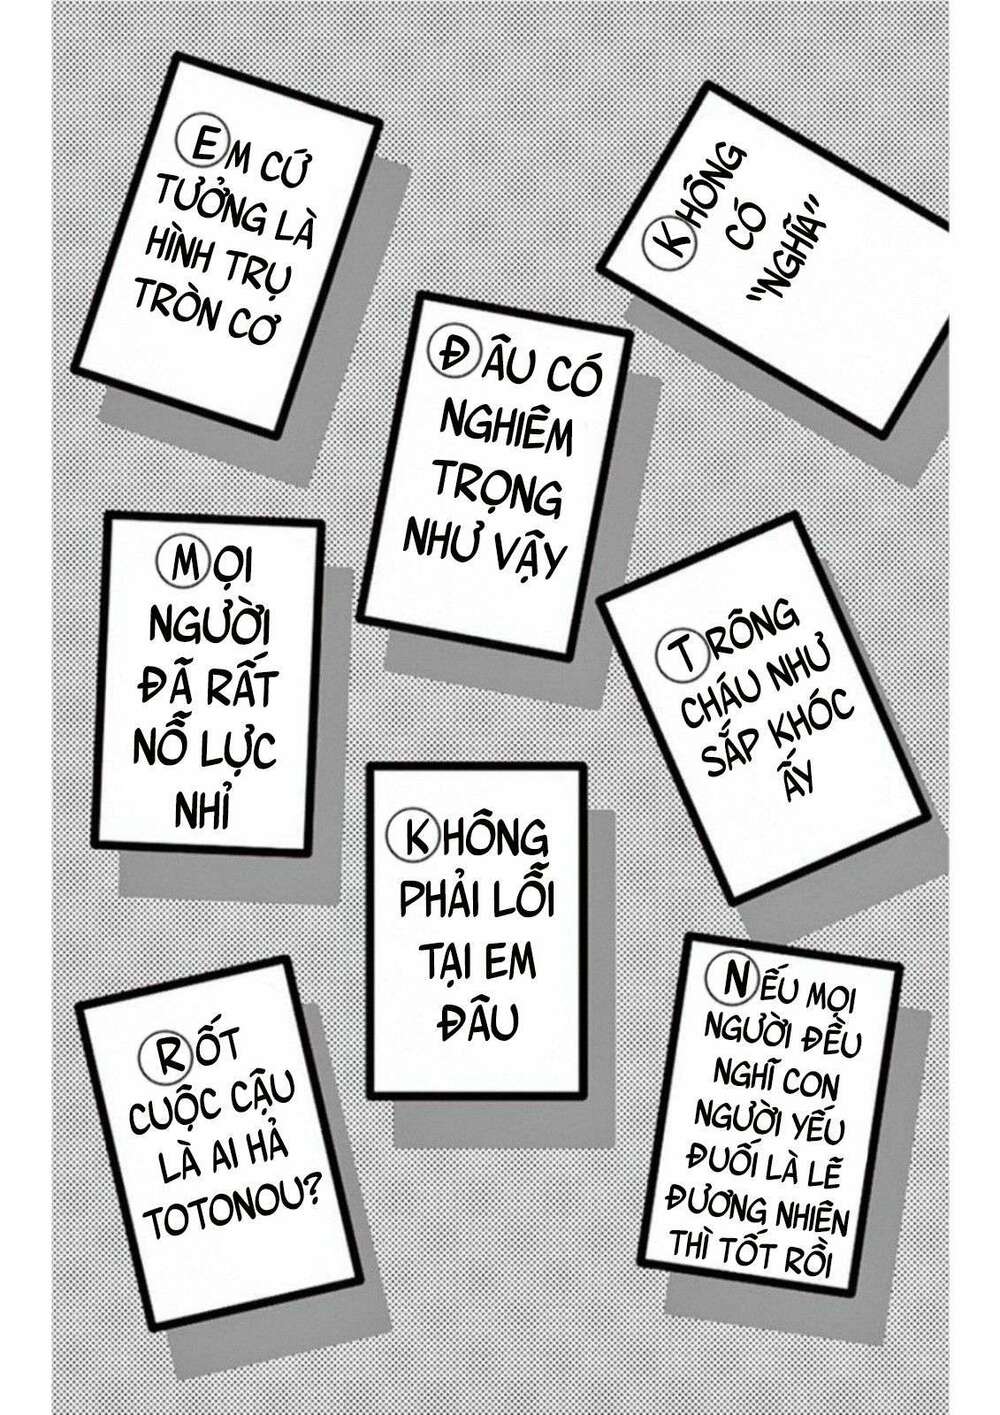 EM CỨ
TƯỞNG LÀ
HÌNH TRỤ
TRÒN CƠ
KHÔNG
CÓ
"NGHĨA"
ĐÂU CÓ
NGHIÊM
TRỌNG
NHƯ VẬY
MỌI
NGƯỜI
ĐÃ RẤT
NỖ LỰC
NHỈ
TRÔNG
CHÁU NHƯ
SẮP KHÓC
ẤY
KHÔNG
PHẢI LỖI
TẠI EM
ĐÂU
RỐT
CUỘC CẬU
LÀ AI HẢ
TOTONOU?
NẾU MỌI
NGƯỜI ĐỀU
NGHĨ CON
NGƯỜI YẾU
ĐUỐI LÀ LẼ
ĐƯƠNG NHIÊN
THÌ TỐT RỒI